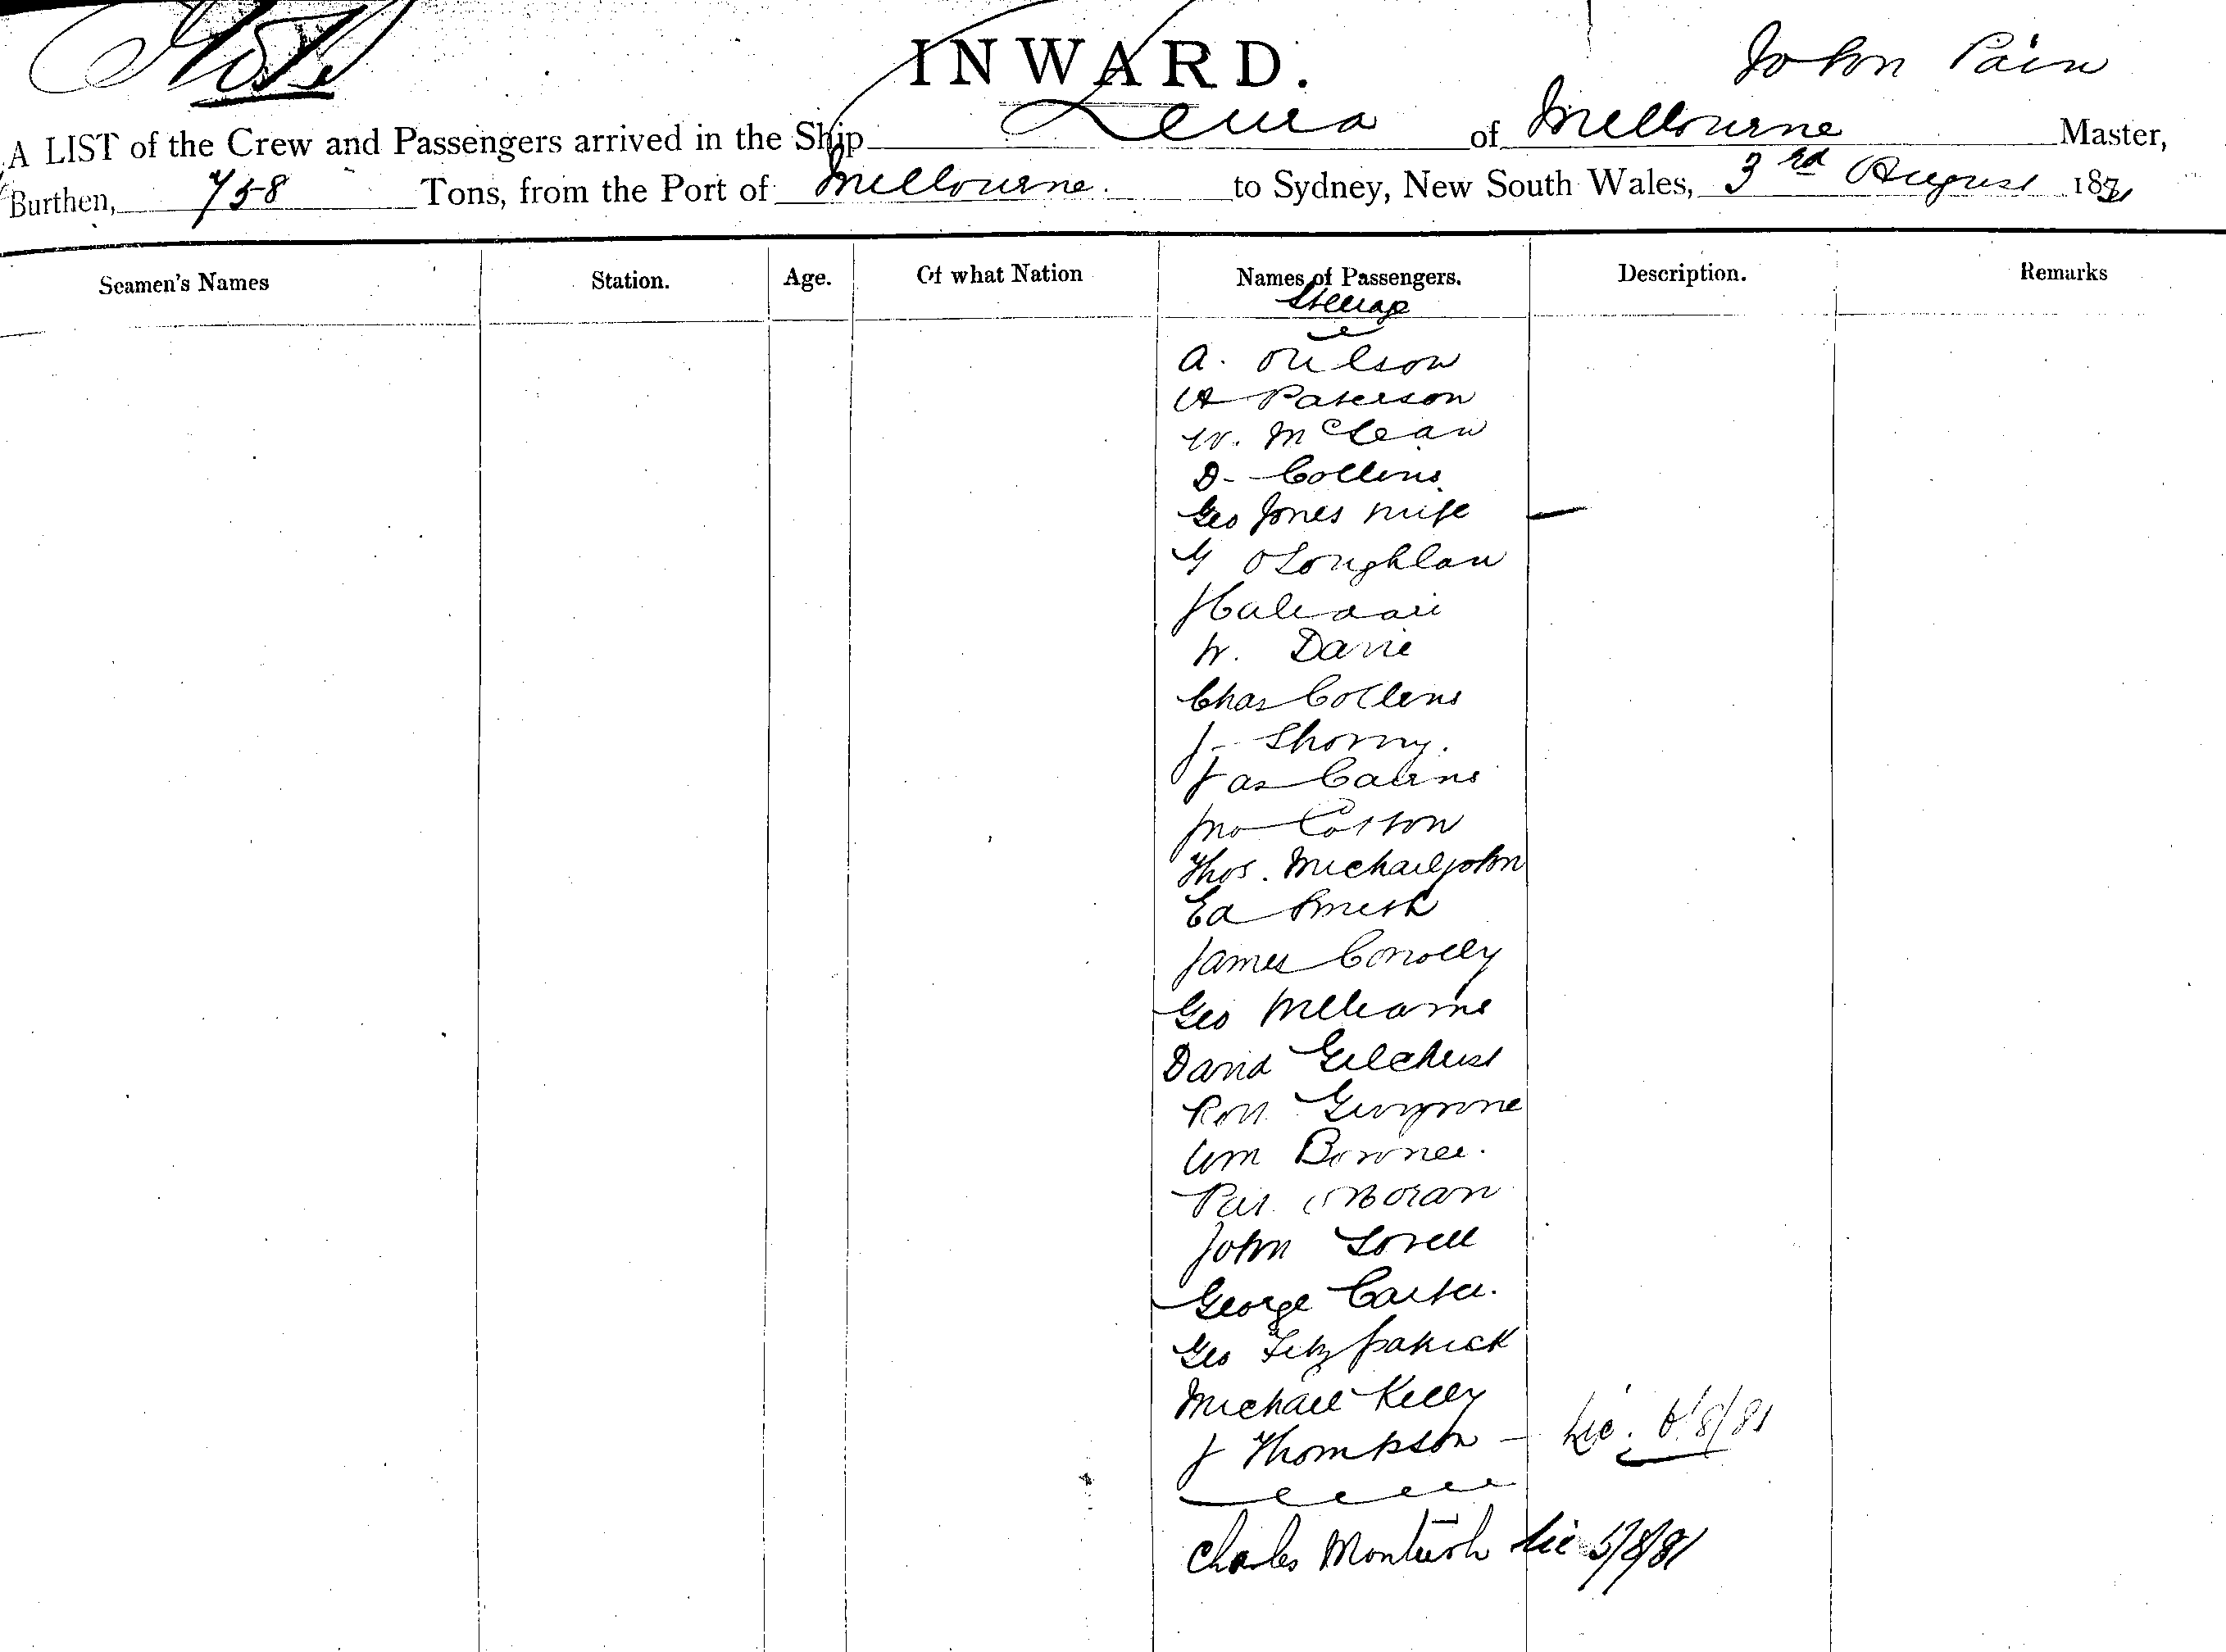 INWARD.
John Pain
A LIST of the Crew and Passengers arrived in the Ship Leura of Melbourne Master,
Burthen, 758 Tons, from the Port of Melbourne. to Sydney, New South Wales, 3rd August 1881
Seamen's Names Station. Age. Of what Nation Names of Passengers. Description. Remarks
Steerage
A. Wilson
A Paterson
W. McLean
D- Collins
Geo Jones Wife
O'Loughlan
W. Davie
Chas Collins
J- Thorny.
Jas Cairns
Jno Cotton
Thos. Michaeljohn
Ed Smith
James Conolly
Geo Williams
David Gilchrist
Robt Gwynne
Wm Bonner.
Pat Moran
John Lovell
George Carter.
Geo Fitzpatrick
Michael Kelly
J Thompson - Lic. 6/8/81
Charles Monteith Lic 5/8/81